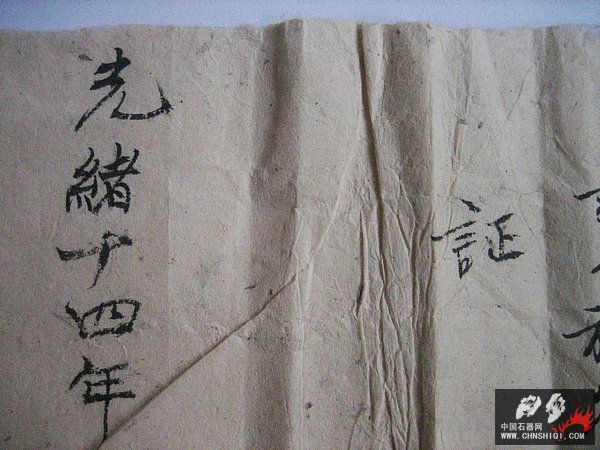 証
光緒十四年
中国石器网
WWW.CHNSHIQI.COM